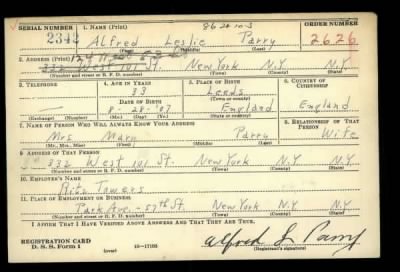 SERIAL NUMBER 1. NAME (Print) ORDER NUMBER
2342 Alfred Leslie Parry 2626
(First) (Middle) (Last)
2. ADDRESS (Print)
332 West 101 St. New York N.Y N.Y
(Number and street or R. F. D. number) (Town) (County) (State)
3. TELEPHONE 4. AGE IN YEARS 5. PLACE OF BIRTH 6. COUNTRY OF CITIZENSHIP
33 Leeds
DATE OF BIRTH (Town or county)
8-28-'07 England England
(Exchange) (Number) (Mo.) (Day) (Yr.) (State or country)
7. NAME OF PERSON WHO WILL ALWAYS KNOW YOUR ADDRESS 8. RELATIONSHIP OF THAT PERSON
Mrs Mary Parry Wife
(Mr., Mrs., Miss) (First) (Middle) (Last)
9. ADDRESS OF THAT PERSON
332 West 101 St. New York N.Y N.Y
(Number and street or R. F. D. number) (Town) (County) (State)
10. EMPLOYER'S NAME
Ritz Towers
11. PLACE OF EMPLOYMENT OR BUSINESS
Park Ave - 57th St. New York N.Y
(Number and street or R. F. D. number) (Town) (County) (State)
I AFFIRM THAT I HAVE VERIFIED ABOVE ANSWERS AND THAT THEY ARE TRUE.
REGISTRATION CARD
D. S. S. Form 1 (over) 16-17105 Alfred L Parry